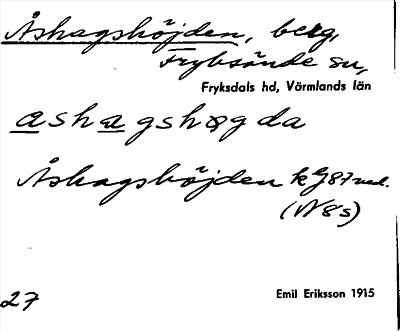 Åshagshöjden, berg,
Fryksände sn,
Fryksdals hd, Värmlands län
ashagshøgda
Åshagshöjden kG87 ned.
(N8s)
27
Emil Eriksson 1915